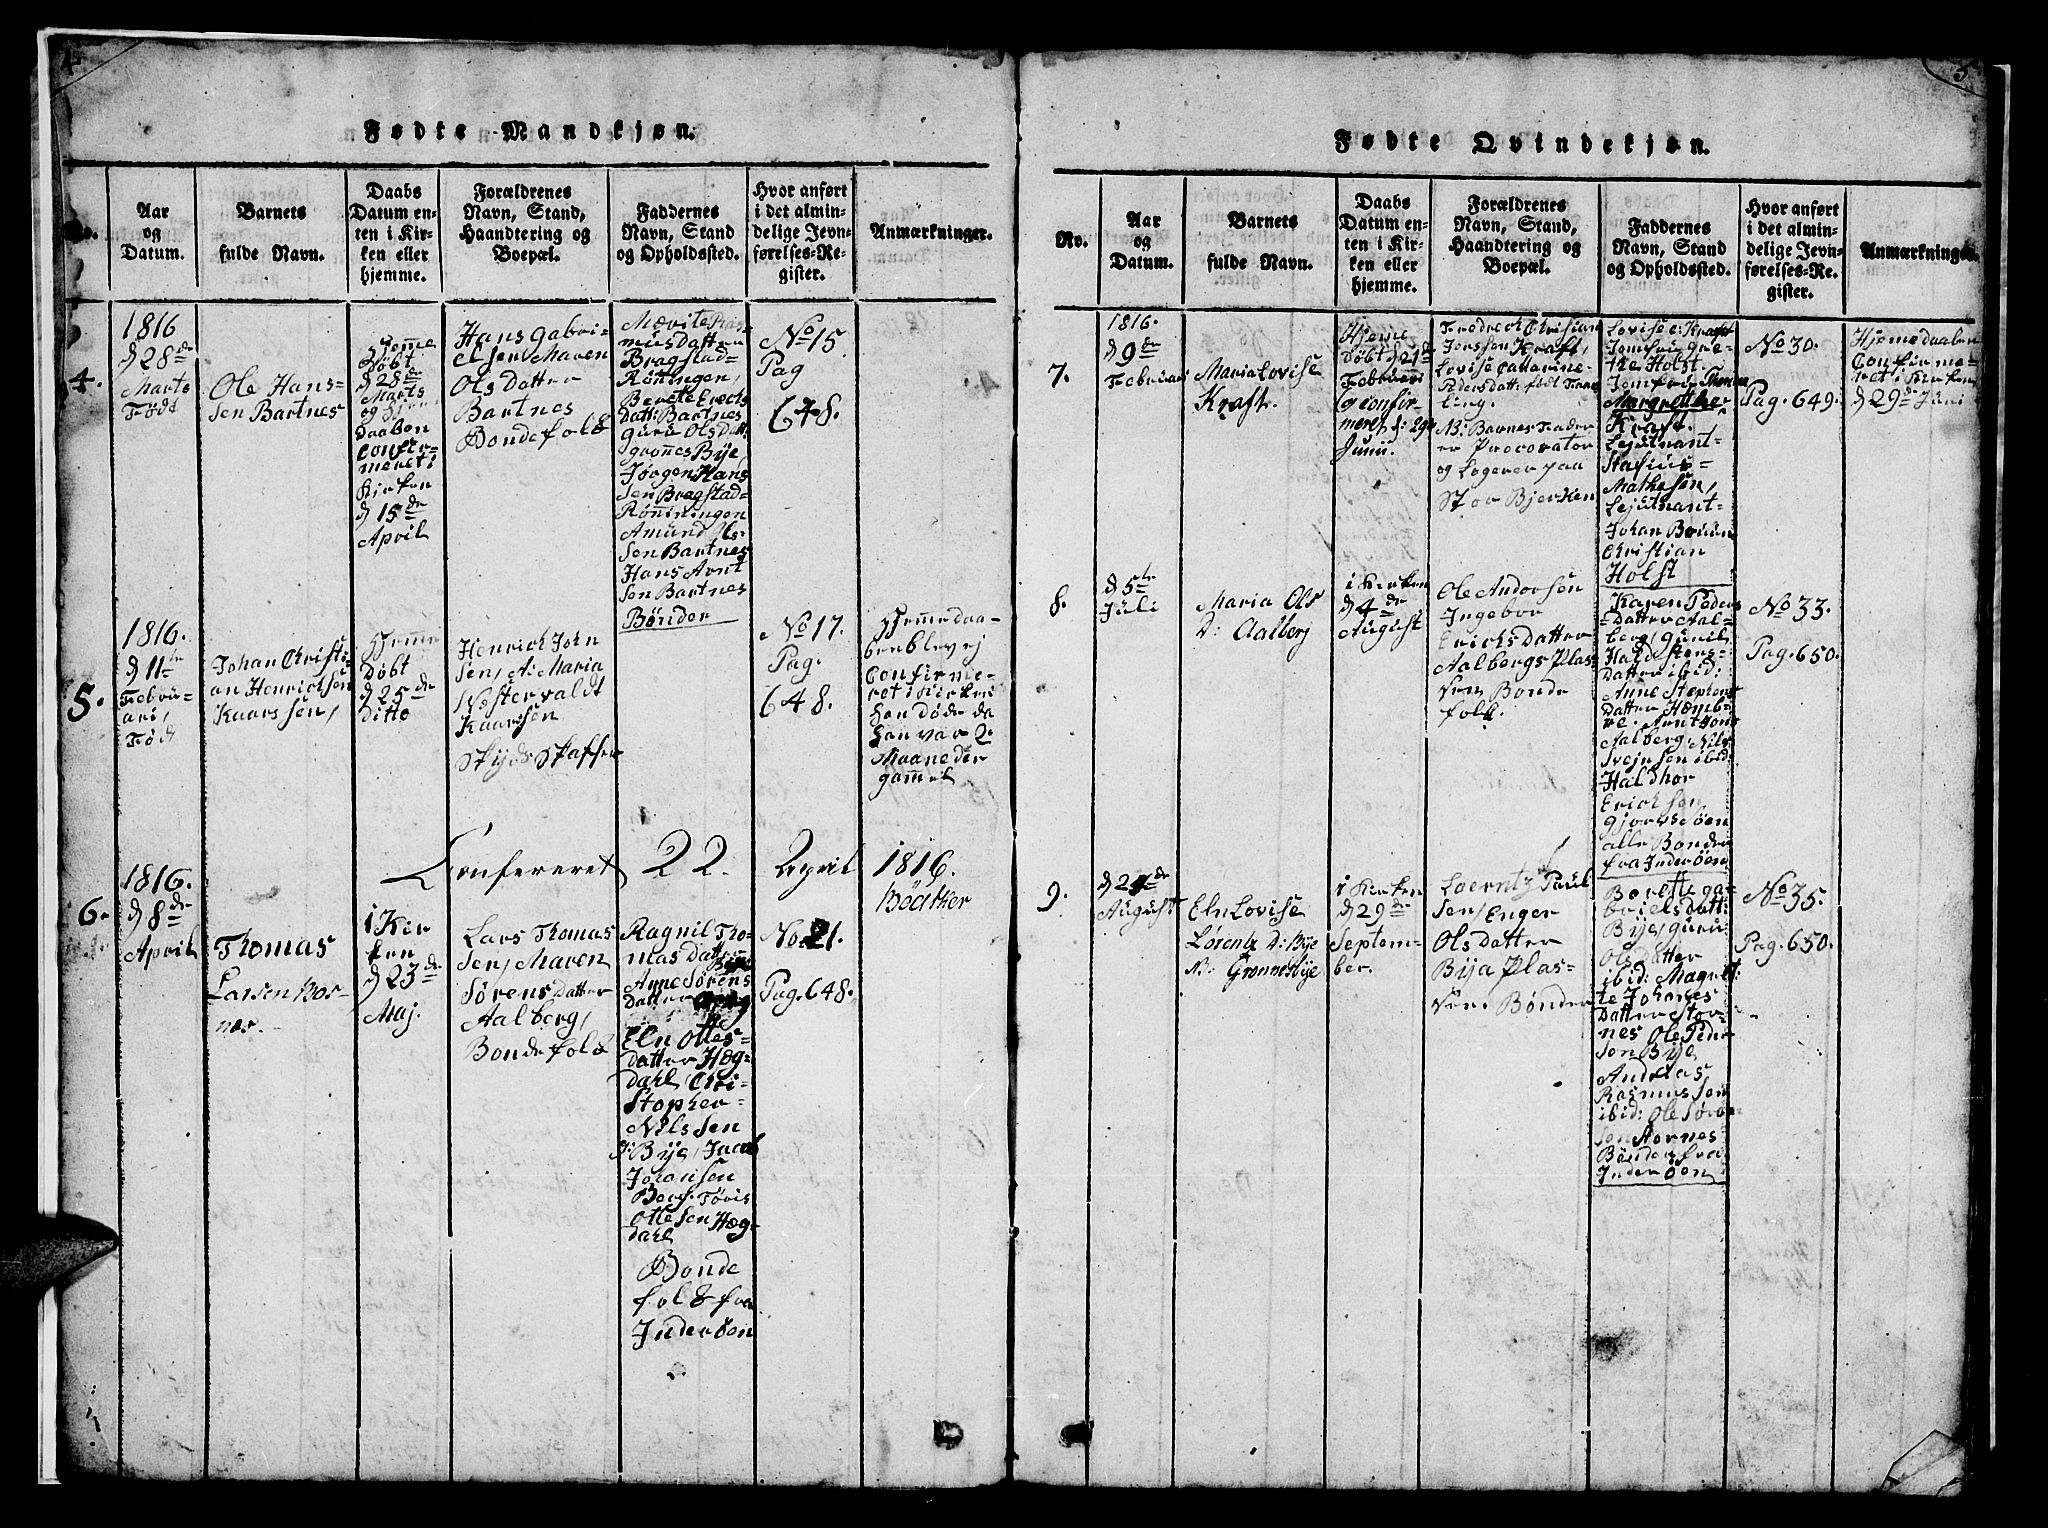 4
Fødte Mandkjøn.
No.
Aar
og
Datum.
Barnets
fulde Navn.
Daabs
Datum en-
ten i Kir-
ken eller
hjemme.
Forældrenes
Navn, Stand,
Haandtering og
Boepæl.
Faddernes
Navn, Stand
og Opholdssted.
Hvor anført
i det almin-
delige Jevn-
førelses-Re-
gister.
Anmærkninger.
4.
1816
d 28de
Marts
Født
Ole Hans-
sen Bartnes
Hjeme
Døbt
d 28de
Marts
og
Daaben
Confir-
meret i
Kirken
d 15de
April
Hans Gabri-
elsen, Maren
Ols Datter
Bartnes
Bondefolk
Mærite Ras-
musdatter
Bragstad-
Røningen,
Berete Erechs
Datt: Bartnes
Guru Olsdatt:
Grønes Bye,
Jørgen Hans
sen Bragstad-
Røningen
Amund Ols-
sen Bartnes
Hans Arnt
sen Bartnes
Bønder
No 15
Pag
648.
5.
1816.
d 11te
Februa-
ari,
Fød
Johan Christi-
an Henrichsen
Kaarssen,
Hjeme
Døbt
d 25de
ditto
Henrich John
sen, A: Maria
Nostervaldt
Kaarsen
Skyds Skaffer
No 17.
Pag.
648.
Hjemmedaa-
ben blev ej
Confirme-
ret i Kirken
han døde da
han var 2
Maaneder
gammel
Confereret 22. April 1816.
Böather
6.
1816.
d 8de
April
Thomas
Larsen Bos-
nes.
i Kir
ken
d 23de
Maj.
Lars Thomas
sen, Maren
Sørens Datter
Aalberg,
Bondefolk
Ragnil Tho-
mas Datter
Anne Sørens
Datter
Eln Ottes-
datter Hæg-
dahl, Chri-
stopher-
Nilssen
Bye, Jacob
Johansen
Borg. Tøris
Ottesen Hæg-
dahl
Bonde
folk fra
Inderøen
No. 21.
Pag. 648.
5
Fødte Qvindekjøn.
No.
Aar
og
Datum.
Barnets
fulde Navn.
Daabs
Datum en-
ten i Kir-
ken eller
hjemme.
Forældrenes
Navn, Stand,
Haandtering og
Boepæl.
Faddernes
Navn, Stand
og Opholdssted.
Hvor anført
i det almin-
delige Jevn-
førelses-Re-
gister.
Anmærkninger.
7.
1816.
d 9de
Februari
Maria Lovise
Kraft.
Hjeme
Døbt d 21de
Februari
og confir-
meret d: 29de
Juni.
Fredrech Christian
Jenssen Kraft,
Lovise Catharine
Pedersdatt: født
ling.
NB: Barnes Fader
er Procorator
og Logerer paa
Stor Bjerken
Lovise: Kraft
Jomfru Gre-
the Holst.
Jomfru
Margrethe
Kraft.
Lejutnant-
Stasius-
Mathesen,
Lejutnant-
Johan Bruun
Christian
Holst
No 30.
Pag. 649.
Hjemedaaben
Confirme-
ret i Kirken
d 29de Juni
8.
d 5te
Juli
Maria Ols
D: Aalberg
i Kirken
d 4de
August
Ole Andersen
Ingebor
Erichs Datter
Aalbergs Plas-
sen Bonde
folk.
Karen Peders
Datter Aal-
berg, Guril
Haldstens-
Datter ibid:
Anne Stephens
Datter Hæmb-
re. Arnt Jons
Aalberg, Nils
Svejnsen ibid
Haldhor
Erichsen
Gjorvseøen
alle Bønder
fra Inderøen
No 33.
Pag. 650.
9.
d 21de
August
Eln Lovise
Lørentz D: Bye
N: Grønnesbye
i Kirken
d 29de
Septem-
ber.
Loerntz Paul
sen, Enger
Olsdatter
Bija Plas-
sen. Bønder
Berette Ga-
brielsdatt:
Bye, Guru
Ols Datter
ibid: Magret:
te Johanes
Datter Stor-
nes Ole Peder
sen Bye
Andreas
Rasmussen
ibid: Ole Søren-
sen Stornes
Bønder fra
Inderøen
No 35.
Pag. 650.